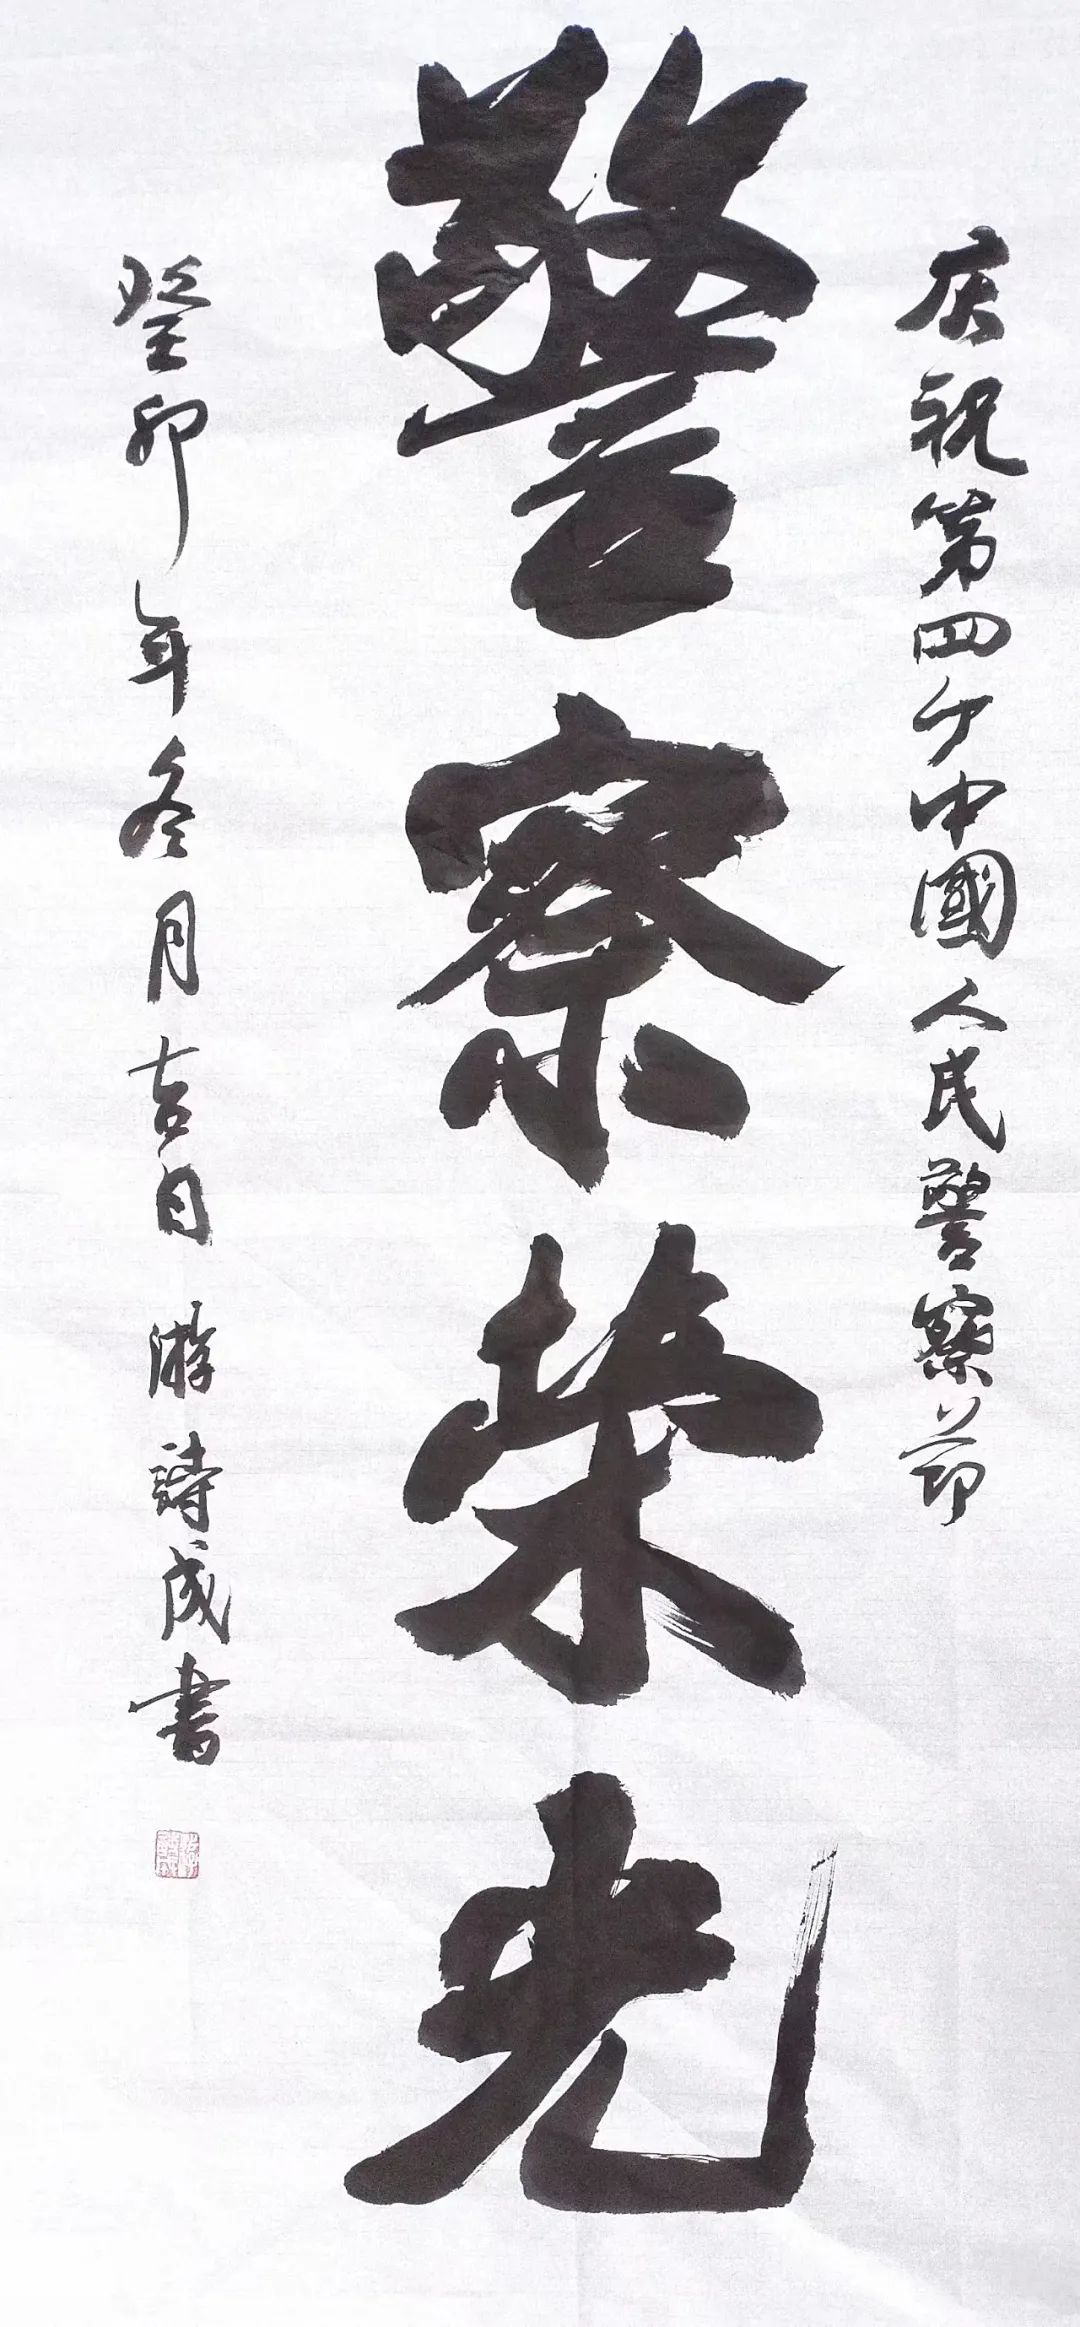 庆祝第四个中國人民警察节
警察荣光
癸卯年冬月吉日 游詩成書